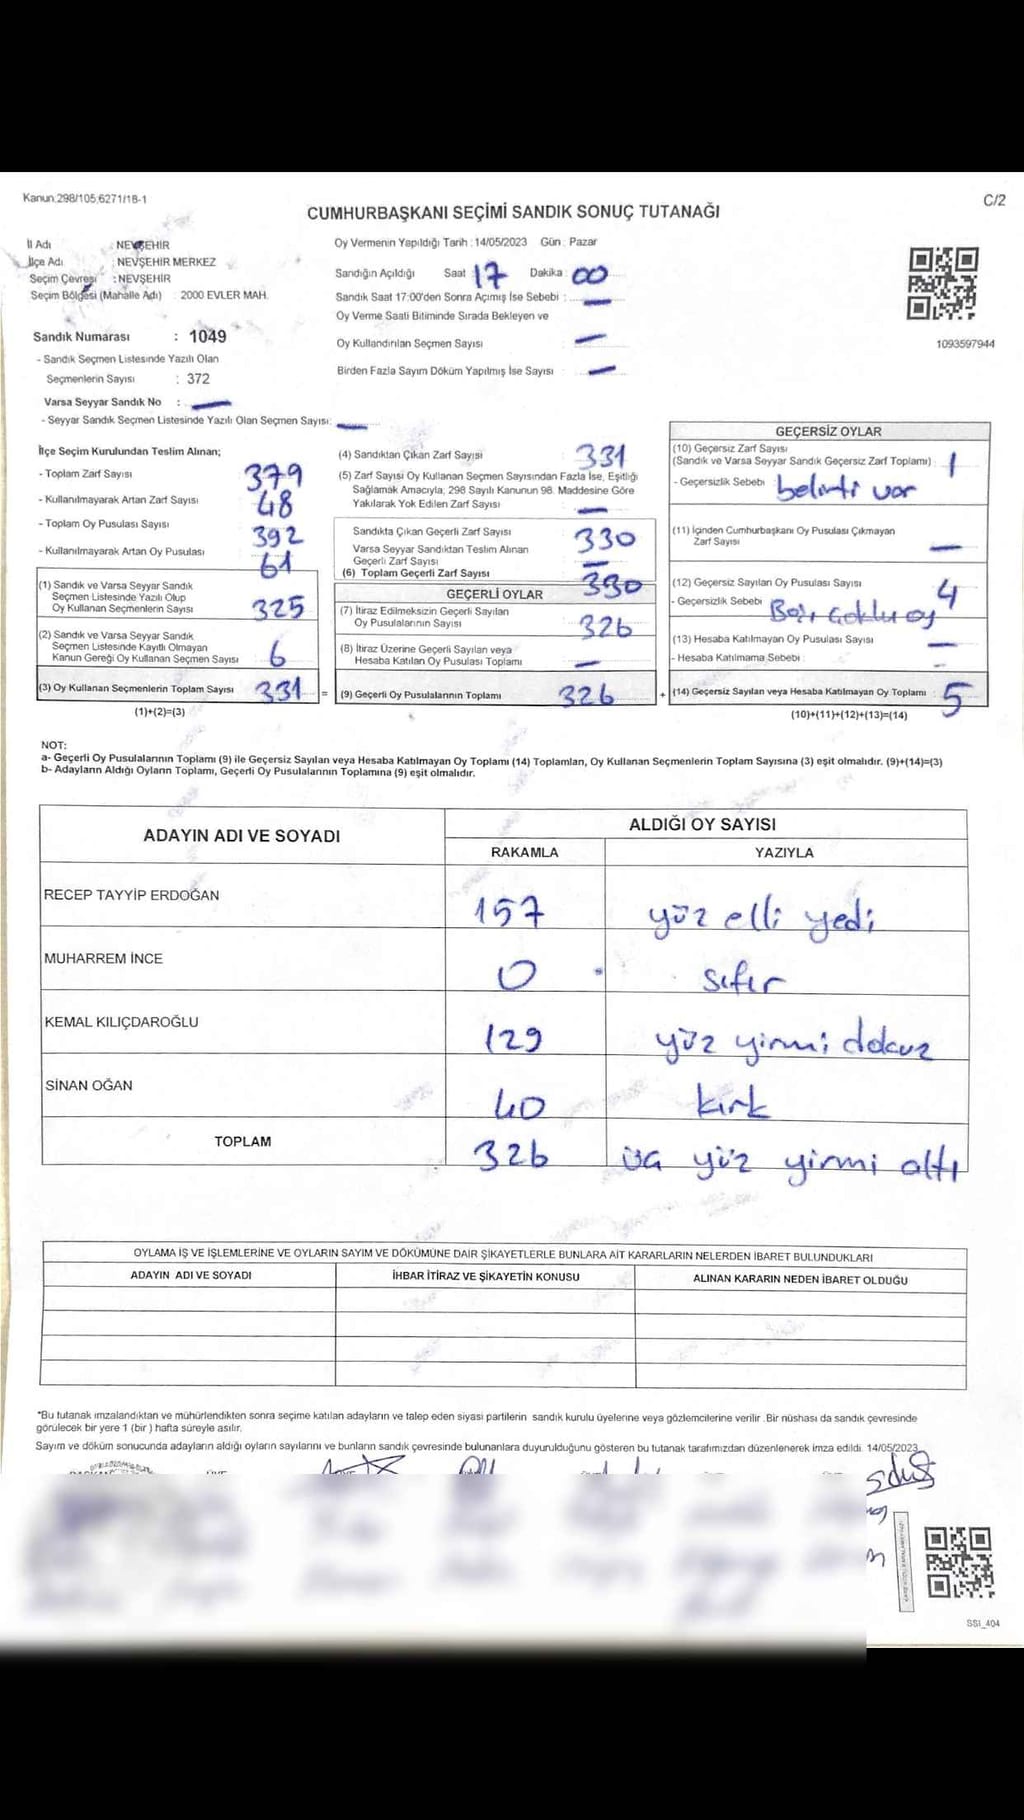 Kanun:298/105;6271/18-1
C/2
CUMHURBAŞKANI SEÇİMİ SANDIK SONUÇ TUTANAĞI
İl Adı : NEVŞEHİR
İlçe Adı : NEVŞEHİR MERKEZ
Seçim Çevresi : NEVŞEHİR
Seçim Bölgesi (Mahalle Adı) : 2000 EVLER MAH.
Sandık Numarası : 1049
- Sandık Seçmen Listesinde Yazılı Olan
Seçmenlerin Sayısı : 372
Varsa Seyyar Sandık No : —
- Seyyar Sandık Seçmen Listesinde Yazılı Olan Seçmen Sayısı: —
Oy Vermenin Yapıldığı Tarih : 14/05/2023 Gün : Pazar
Sandığın Açıldığı Saat : 17 Dakika : 00
Sandık Saat 17:00'den Sonra Açımış İse Sebebi : —
Oy Verme Saati Bitiminde Sırada Bekleyen ve
Oy Kullandırılan Seçmen Sayısı : —
Birden Fazla Sayım Döküm Yapılmış İse Sayısı : —
1093597944
İlçe Seçim Kurulundan Teslim Alınan;
- Toplam Zarf Sayısı : 379
- Kullanılmayarak Artan Zarf Sayısı : 48
- Toplam Oy Pusulası Sayısı : 392
- Kullanılmayarak Artan Oy Pusulası : 61
(1) Sandık ve Varsa Seyyar Sandık
Seçmen Listesinde Yazılı Olup
Oy Kullanan Seçmenlerin Sayısı 325
(2) Sandık ve Varsa Seyyar Sandık
Seçmen Listesinde Kayıtlı Olmayan
Kanun Gereği Oy Kullanan Seçmen Sayısı 6
(3) Oy Kullanan Seçmenlerin Toplam Sayısı 331 =
(1)+(2)=(3)
(4) Sandıktan Çıkan Zarf Sayısı 331
(5) Zarf Sayısı Oy Kullanan Seçmen Sayısından Fazla İse, Eşitliği
Sağlamak Amacıyla; 298 Sayılı Kanunun 98. Maddesine Göre
Yakılarak Yok Edilen Zarf Sayısı —
Sandıkta Çıkan Geçerli Zarf Sayısı 330
Varsa Seyyar Sandıktan Teslim Alınan
Geçerli Zarf Sayısı —
(6) Toplam Geçerli Zarf Sayısı 330
GEÇERLİ OYLAR
(7) İtiraz Edilmeksizin Geçerli Sayılan
Oy Pusulalarının Sayısı 326
(8) İtiraz Üzerine Geçerli Sayılan veya
Hesaba Katılan Oy Pusulası Toplamı —
(9) Geçerli Oy Pusulalarının Toplamı 326 +
GEÇERSİZ OYLAR
(10) Geçersiz Zarf Sayısı
(Sandık ve Varsa Seyyar Sandık Geçersiz Zarf Toplamı) : 1
- Geçersizlik Sebebi : belirti var
(11) İçinden Cumhurbaşkanı Oy Pusulası Çıkmayan
Zarf Sayısı —
(12) Geçersiz Sayılan Oy Pusulası Sayısı 4
- Geçersizlik Sebebi oy
(13) Hesaba Katılmayan Oy Pusulası Sayısı —
- Hesaba Katılmama Sebebi : —
(14) Geçersiz Sayılan veya Hesaba Katılmayan Oy Toplamı : 5
(10)+(11)+(12)+(13)=(14)
NOT:
a- Geçerli Oy Pusulalarının Toplamı (9) ile Geçersiz Sayılan veya Hesaba Katılmayan Oy Toplamı (14) Toplamları, Oy Kullanan Seçmenlerin Toplam Sayısına (3) eşit olmalıdır. (9)+(14)=(3)
b- Adayların Aldığı Oyların Toplamı, Geçerli Oy Pusulalarının Toplamına (9) eşit olmalıdır.
ADAYIN ADI VE SOYADI ALDIĞI OY SAYISI
RAKAMLA YAZIYLA
RECEP TAYYİP ERDOĞAN 157 yüz elli yedi
MUHARREM İNCE 0 sıfır
KEMAL KILIÇDAROĞLU 129 yüz yirmi dokuz
SİNAN OĞAN 40 kırk
TOPLAM 326 üç yüz yirmi altı
OYLAMA İŞ VE İŞLEMLERİNE VE OYLARIN SAYIM VE DÖKÜMÜNE DAİR ŞİKAYETLERLE BUNLARA AİT KARARLARIN NELERDEN İBARET BULUNDUKLARI
ADAYIN ADI VE SOYADI İHBAR İTİRAZ VE ŞİKAYETİN KONUSU ALINAN KARARIN NEDEN İBARET OLDUĞU
*Bu tutanak imzalandıktan ve mühürlendikten sonra seçime katılan adayların ve talep eden siyasi partilerin sandık kurulu üyelerine veya gözlemcilerine verilir. Bir nüshası da sandık çevresinde
görülecek bir yere 1 (bir) hafta süreyle asılır.
Sayım ve döküm sonucunda adayların aldığı oyların sayılarını ve bunların sandık çevresinde bulunanlara duyurulduğunu gösteren bu tutanak tarafımızdan düzenlenerek imza edildi. 14/05/2023
SSI_404